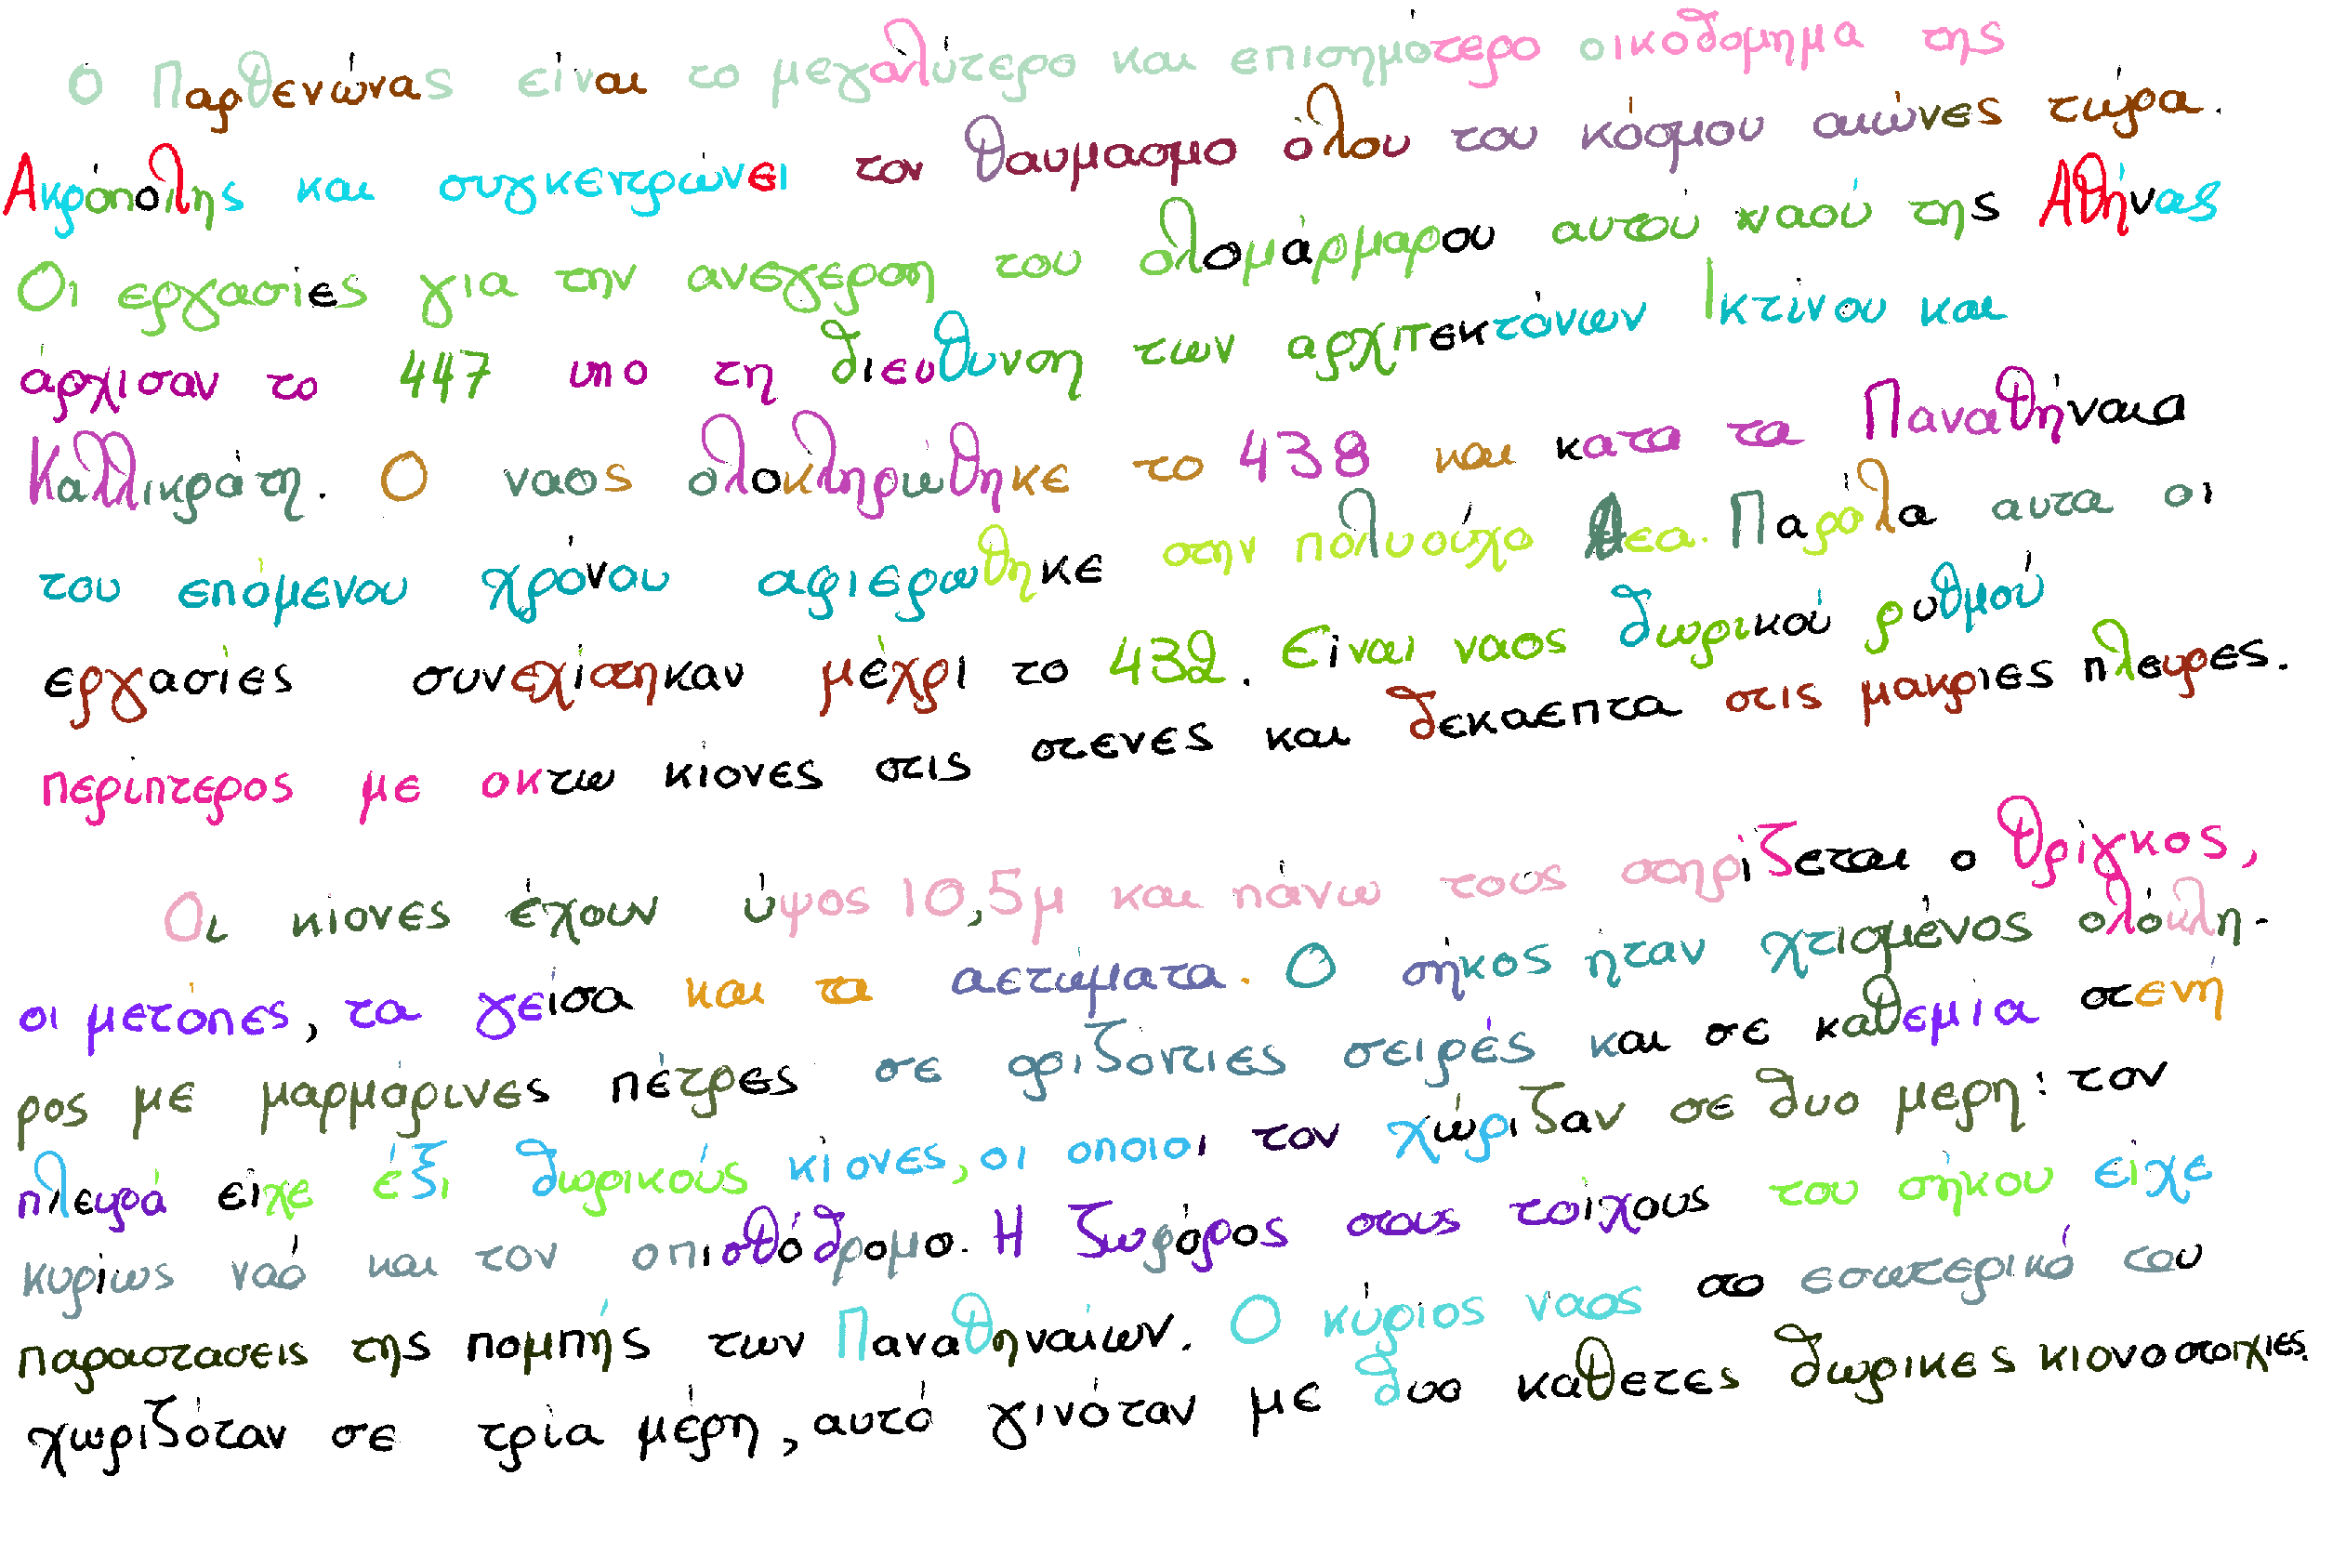 Ο Παρθενώνας είναι το μεγαλύτερο και επισημότερο οικοδομημα της
Ακρόπολης και συγκεντρώνει τον θαυμασμο όλου του κόσμου αιώνες τώρα.
Οι εργασίες για την ανεγερση του ολομάρμαρου αυτού ναού της Αθήνας
άρχισαν το 447 υπο τη διευθυνση των αρχιτεκτόνων Ικτίνου και
Καλλικράτη. Ο ναος ολοκληρώθηκε το 438 και κατα τα Παναθήναια
του επόμενου χρόνου αφιερωθηκε στην πολυούχο θεα. Παρόλα αυτα οι
εργασίες συνεχίστηκαν μέχρι το 432. Είναι ναος δωρικού ρυθμού
περίπτερος με οκτω κίονες στις στενες και δεκαεπτα στις μακριες πλευρες.
Οι κίονες έχουν ύψος 10,5μ και πάνω τους στηρίζεται ο θρίγκος,
οι μετόπες, τα γείσα και τα αετώματα. Ο σήκος ήταν χτισμένος ολόκλη-
ρος με μαρμάρινες πέτρες σε οριζόντιες σειρές και σε καθεμία στενή
πλευρά είχε έξι δωρικούς κίονες, οι οποιοι τον χώριζαν σε δυο μερη: τον
κυρίως ναό και τον οπισθόδρομο. Η ζωφόρος στους τοίχους του σήκου είχε
παραστασεις της πομπής των Παναθηναίων. Ο κύριος ναος στο εσωτερικό του
χωριζόταν σε τρία μέρη, αυτό γινόταν με δυο καθετες δωρικες κιονοστοιχιες.